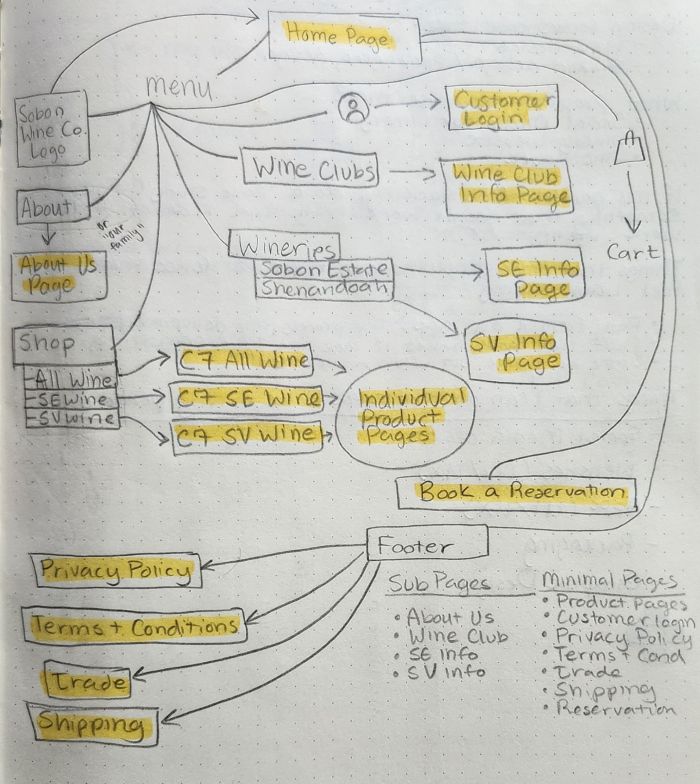 Home Page
menu
Sobon
Wine Co.
Logo
Customer
Login
Wine Clubs
Wine Club
Info Page
About
or
"our
family"
About Us
Page
Cart
Wineries
Sobon Estate
Shenandoah
SE Info
Page
SV Info
Page
Shop
All Wine
SE Wine
SV Wine
C7 All Wine
C7 SE Wine
C7 SV Wine
Individual
Product
Pages
Book a Reservation
Footer
Privacy Policy
Terms + Conditions
Trade
Shipping
Sub Pages
• About Us
• Wine Club
• SE Info
• SV Info
Minimal Pages
• Product Pages
• Customer login
• Privacy Policy
• Terms + Cond
• Trade
• Shipping
• Reservation